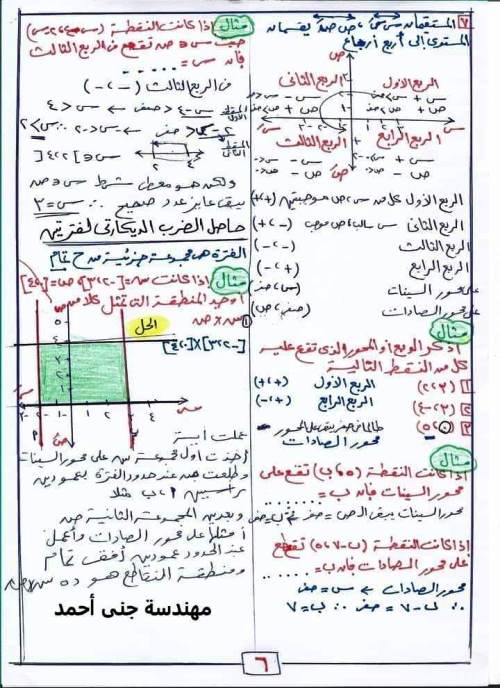 ٧ المستقيمان س س، ص ص يقسمان
المستوى إلى أربع أرباع
ص
الربع الثانى
الربع الأول
س
س
الربع الثالث
الربع الرابع
ص
الربع الأول كل من س، ص موجبتين (+،+)
الربع الثانى س سالب، ص موجب (-،+)
الربع الثالث (-،-)
الربع الرابع (+،-)
على محور السينات (س، صفر)
على محور الصادات (صفر، ص)
مثال
أذكر الربع أو المحور الذى تقع عليه
كل من النقط التالية
١ (٣،٢) الربع الأول (+،+)
٢ (٣،-٤) الربع الرابع (+،-)
٣ (٠،٥)
محور الصادات
مثال
إذا كانت النقطة (٥، ب) تقع على
محور السينات فإن ب = ........
محور السينات يبقى الـ ص = صفر
إذا كانت النقطة (ب-٧، ٥) تقع
على محور الصادات فإن ب = ........
محور الصادات ← س = صفر
∴ ب - ٧ = صفر ∴ ب = ٧
مثال إذا كانت النقطة (س-٤، ٢-س)
حيث س ∈ ص تقع فى الربع الثالث
فإن س = ......
فى الربع الثالث (-،-)
س-٤ < صفر ← س < ٤
٢-س < صفر ← -س < -٢ ∴ س > ٢
٢ ٤
س ∈ ]٢،٤[
ولكن هو معطى شرط س ∈ ص
يبقى عايز عدد صحيح ∴ س = ٣
حاصل الضرب الديكارتى لفترتين
الفترة هى مجموعة جزئية من ح تمام
مثال إذا كانت س = [-٢،٣] ص = [٠،٤]
أوجد المنطقة التى تمثل كلا من
١ س × ص
الحل
[-٢،٣] × [٠،٤]
٥
٤
٣
٢
١
-٢ -١ ١ ٢ ٣ ٤
عملت إية
أخذت أول مجموعة س على محور السينات
وطلعت من عند حدود الفترة بعمودين
رأسيين ٩، ب مثلا
وبعدين المجموعة الثانية ص
أمثلها على محور الصادات وأعمل
عند الحدود عمودين أفقى تمام
ومنطقة التقاطع هو ده س × ص
مهندسة جنى أحمد
٦